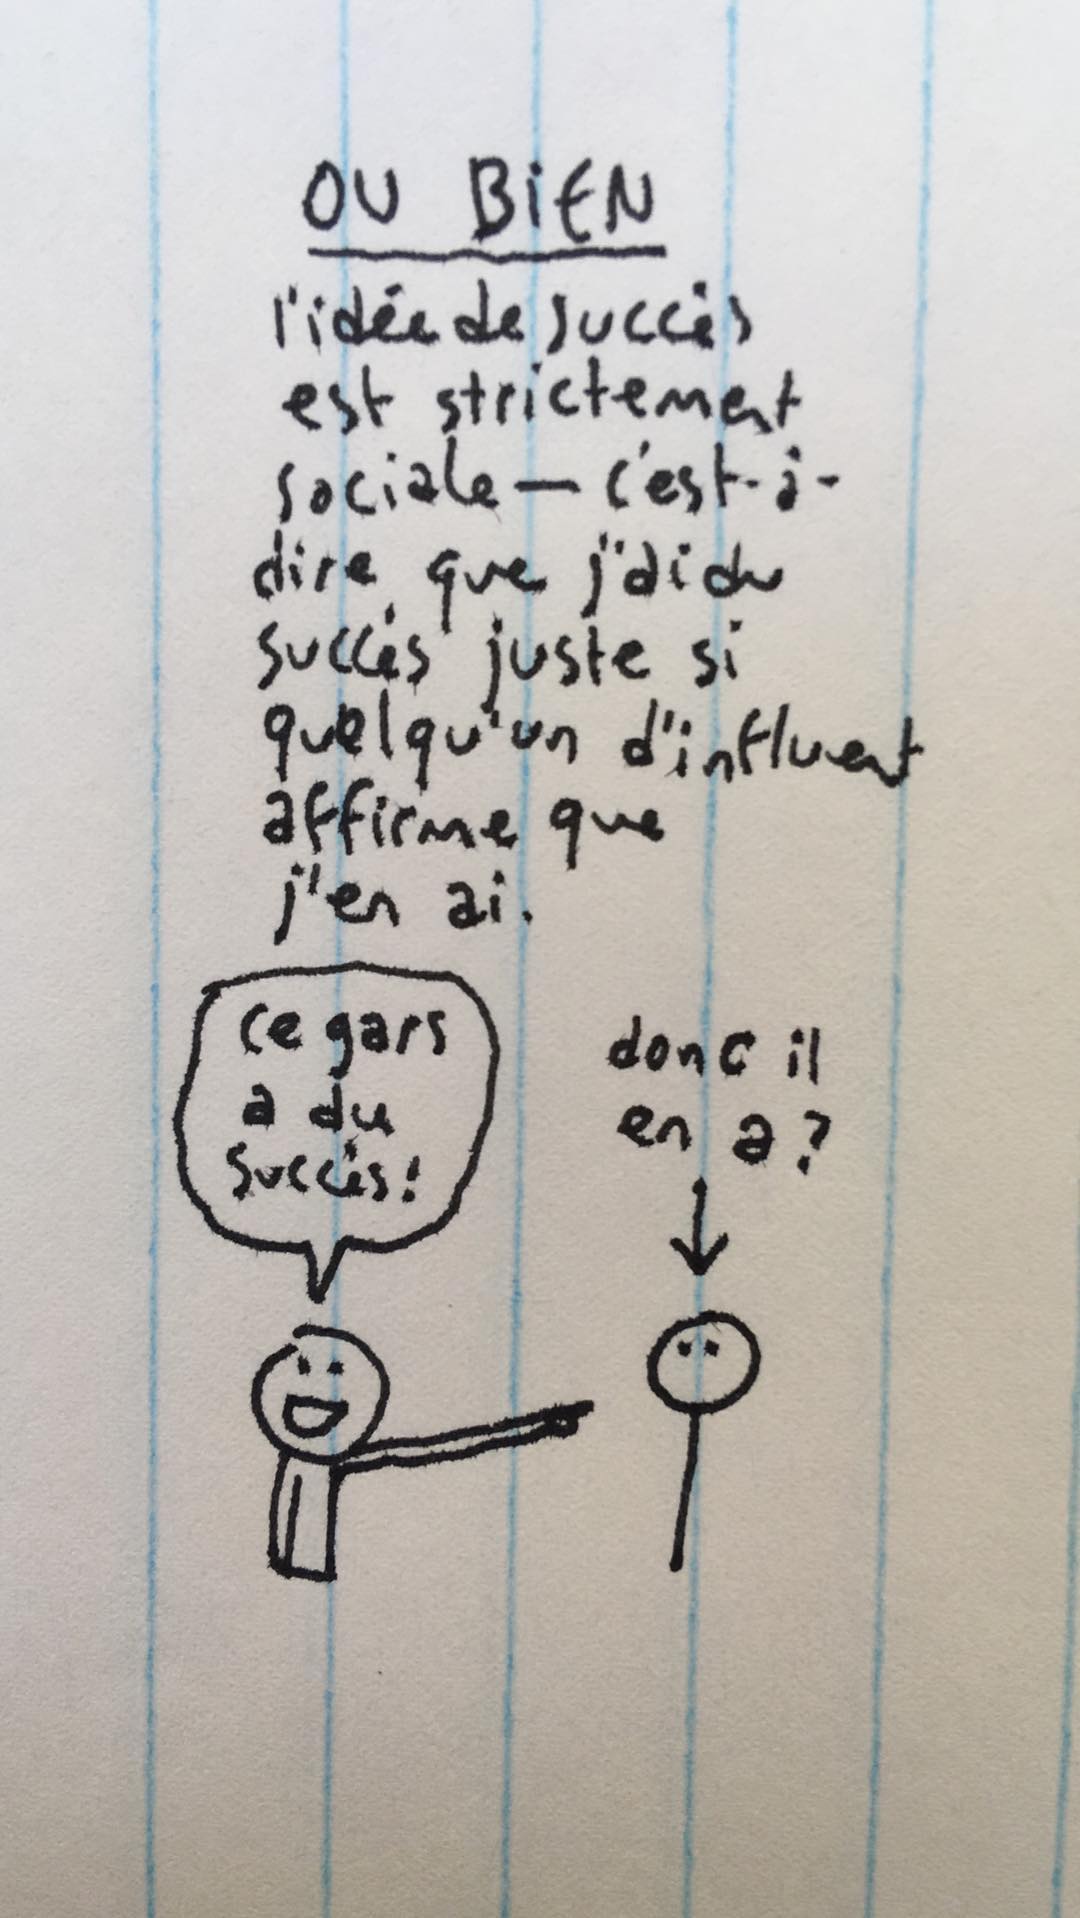 OU BIEN
l'idée de succès
est strictement
sociale — c'est-à-
dire que j'ai du
succès juste si
quelqu'un d'influent
affirme que
j'en ai.
ce gars
a du
succès!
donc il
en a?